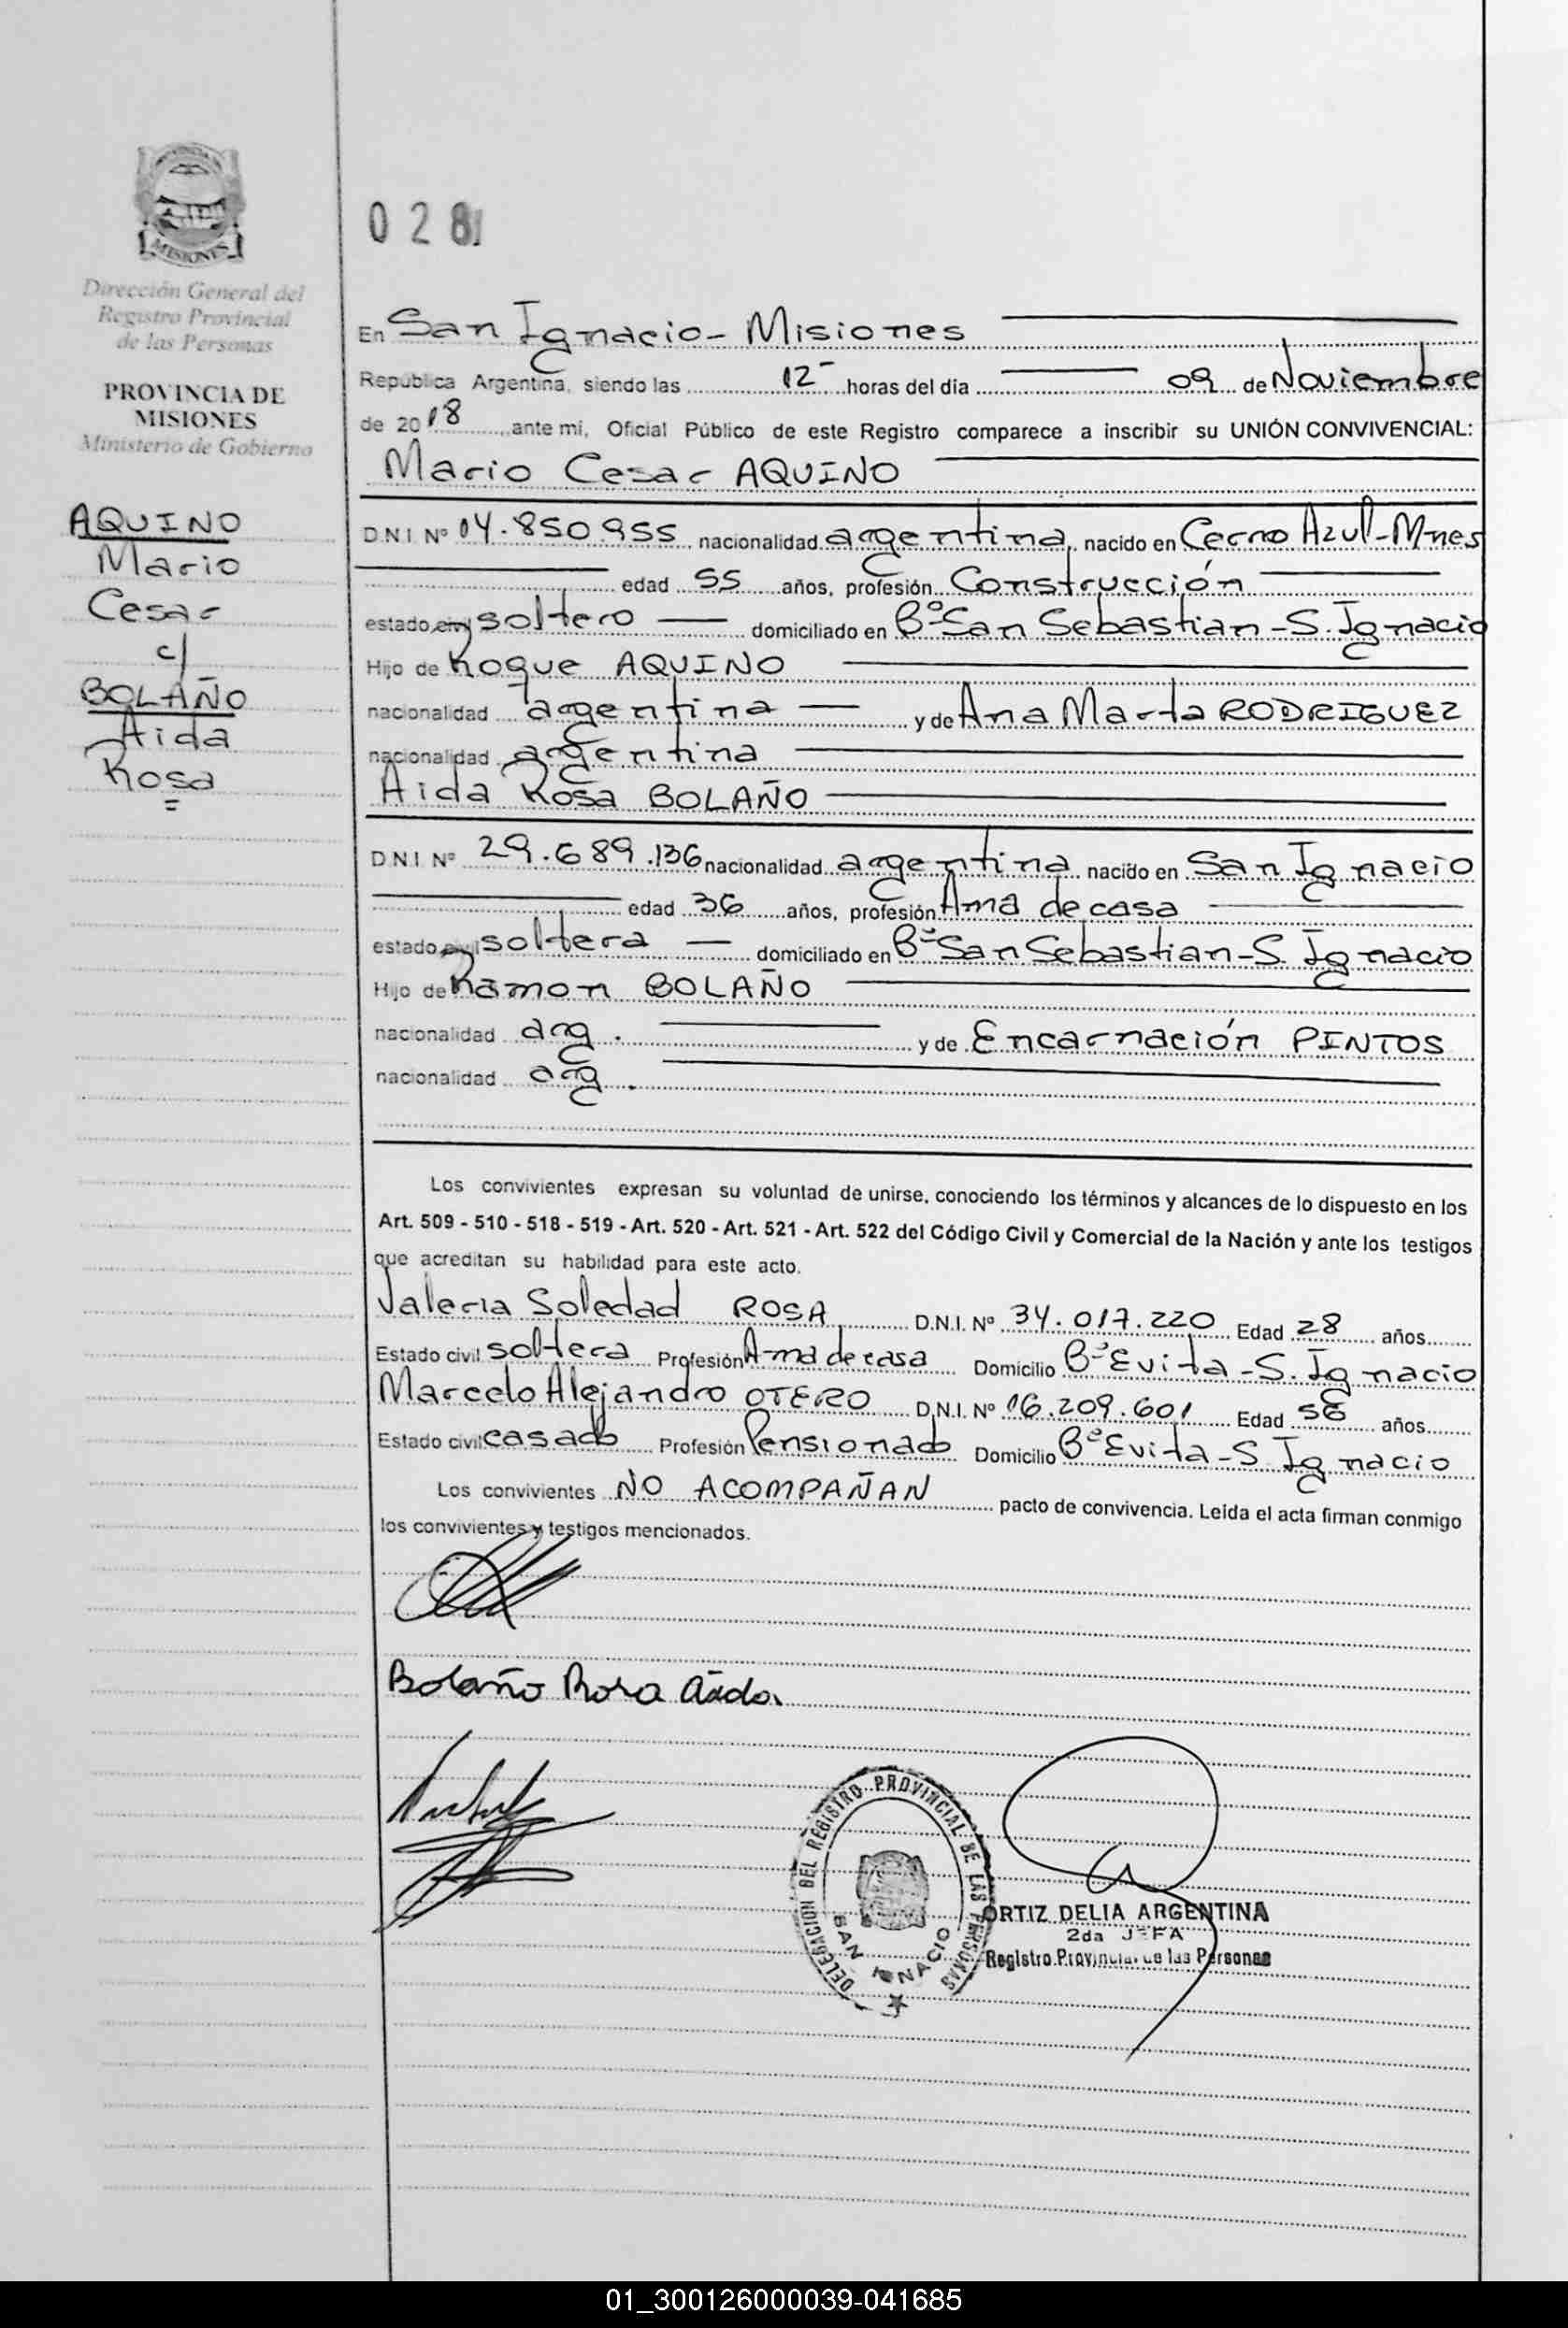 PROVINCIA DE
MISIONES
Dirección General del
Registro Provincial
de las Personas
PROVINCIA DE
MISIONES
Ministerio de Gobierno
AQUINO
Mario
Cesar
c/
BOLAÑO
Aida
Rosa
028
En San Ignacio - Misiones
República Argentina, siendo las 12 horas del día 09 de Noviembre
de 2018 ante mí, Oficial Público de este Registro comparece a inscribir su UNIÓN CONVIVENCIAL:
Mario Cesar AQUINO
D.N.I. Nº 14.850.955 nacionalidad argentina, nacido en Cerro Azul - Mnes
edad 55 años, profesión Construcción
estado civil soltero domiciliado en Bº San Sebastian - S. Ignacio
Hijo de Roque AQUINO
nacionalidad argentina y de Ana Marta RODRIGUEZ
nacionalidad argentina
Aida Rosa BOLAÑO
D.N.I. Nº 29.689.136 nacionalidad argentina nacido en San Ignacio
edad 36 años, profesión Ama de casa
estado civil soltera domiciliado en Bº San Sebastian - S. Ignacio
Hijo de Ramon BOLAÑO
nacionalidad arg. y de Encarnación PINTOS
nacionalidad arg.
Los convivientes expresan su voluntad de unirse, conociendo los términos y alcances de lo dispuesto en los
Art. 509 - 510 - 518 - 519 - Art. 520 - Art. 521 - Art. 522 del Código Civil y Comercial de la Nación y ante los testigos
que acreditan su habilidad para este acto.
Valeria Soledad ROSA D.N.I. Nº 34.017.220 Edad 28 años
Estado civil soltera Profesión Ama de casa Domicilio Bº Evita - S. Ignacio
Marcelo Alejandro OTERO D.N.I. Nº 16.209.601 Edad 56 años
Estado civil casado Profesión Pensionado Domicilio Bº Evita - S. Ignacio
Los convivientes NO ACOMPAÑAN pacto de convivencia. Leída el acta firman conmigo
los convivientes y testigos mencionados.
Bolaño Rosa Aida
DELEGACION DEL REGISTRO PROVINCIAL DE LAS PERSONAS
SAN IGNACIO
ORTIZ DELIA ARGENTINA
2da JEFA
Registro Provincial de las Personas
01_300126000039-041685